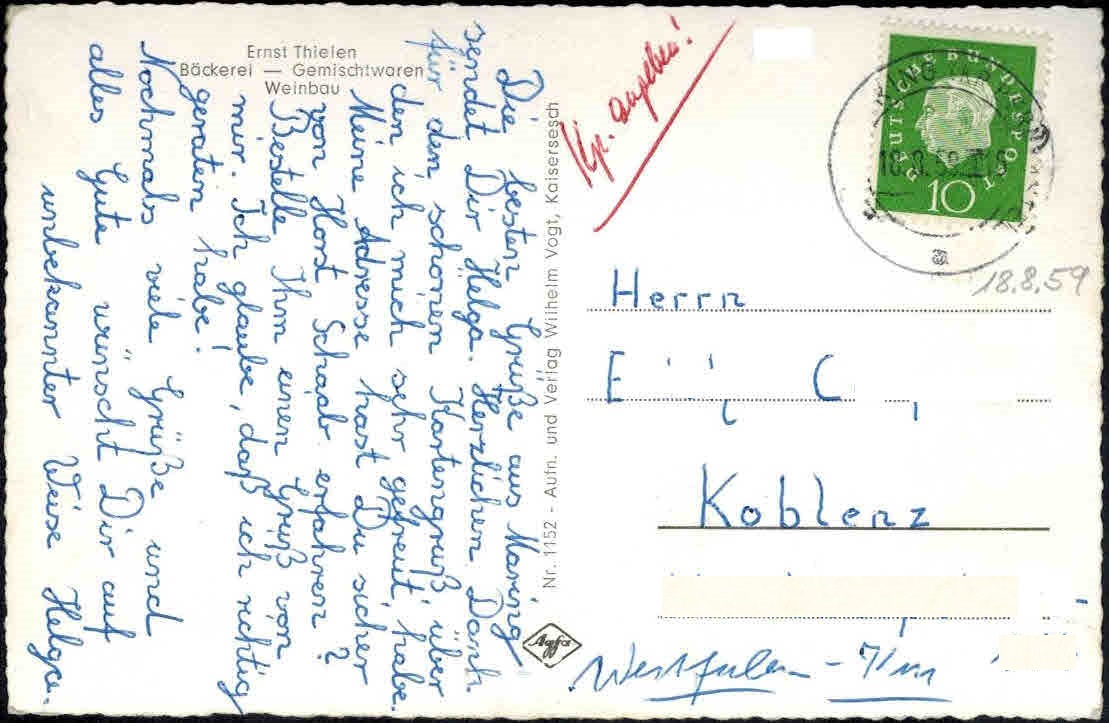 Ernst Thielen
Bäckerei — Gemischtwaren
Weinbau
Die besten Grüße aus Maring
sendet Dir Helga. Herzlichen Dank
für den schönen Kartengruß, über
den ich mich sehr gefreut habe.
Meine Adresse hast Du sicher
von Horst Schaab erfahren?
Bestelle Ihm einen Gruß von
mir. Ich glaube, daß ich richtig
geraten habe!
Nochmals viele Grüße und
alles Gute wünscht Dir auf
unbekannter Weise Helga.
Nr. 1152 - Aufn. und Verlag Wilhelm Vogt, Kaisersesch
Agfa
angeben!
DEUTSCHE BUNDESPOST
10
18.8.59
a
18.8.59
Herrn
E
C
Koblenz
Westfalen